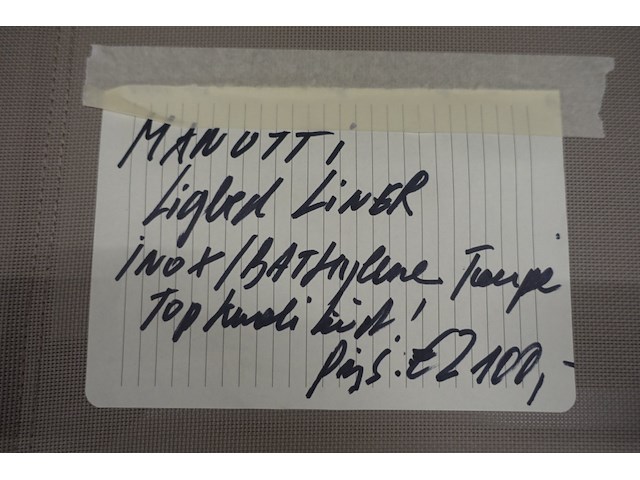 MANUTTI
Ligbed LiNER
iNOX/BATHylene Taupe
Topkwaliteit!
Prijs: €2100,-